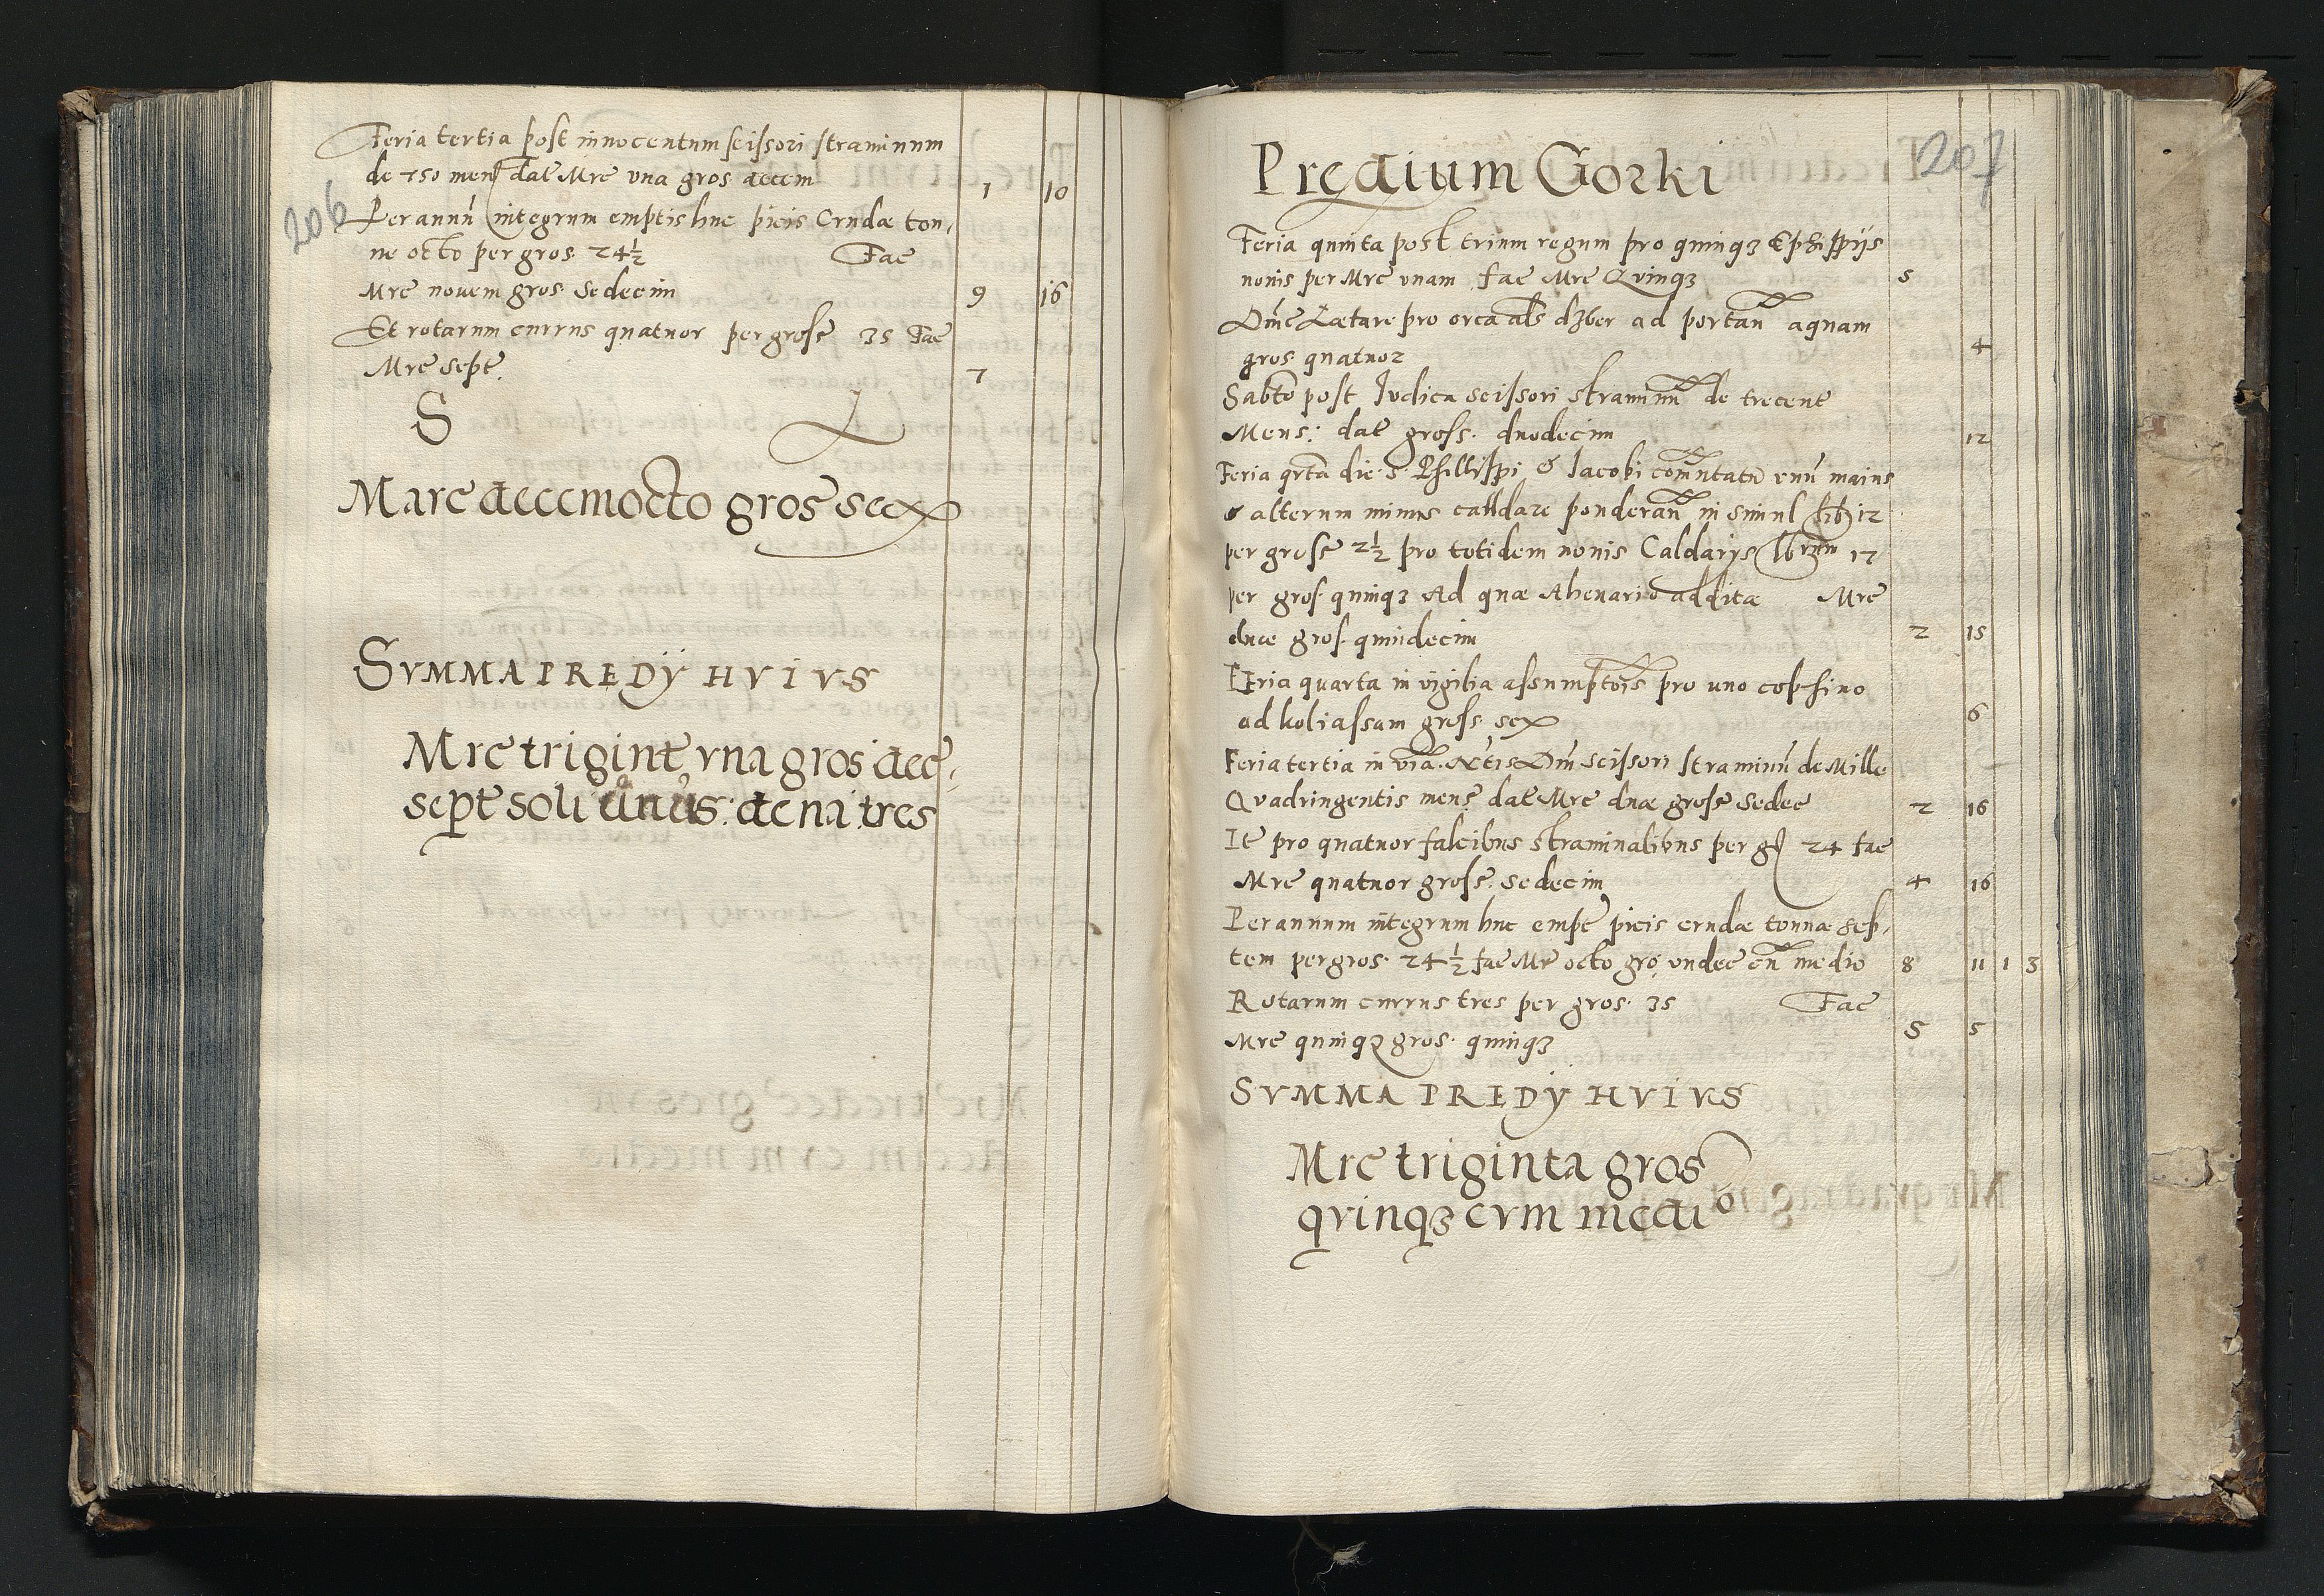 206
Feria tertia post innocentum scissori straminum
de 750 mens dat Mrc vna gros decem 1 10
Per annū integrum emptis huc picis Crudæ ton,
ne octo per gros 24½ Fac
Mrc novem gros. Sedecim 9 16
Et rotarum currus quatuor per gross 35 Fac
Mrc sept. 7
S
Marc decemocto gros sex
SVMMA PREDY HVIVS
Mrc trigint vna gros dec,
sept soli unus: dena: tres
207
Prędium Gorki
Feria quinta post trium regum pro quinq3 Ephippijs
nouis per Mrc vnam fac Mrc Qvinq3 5
Dnīc Lætare pro orca als dzber ad portan aquam
gros quatuor 4
Sabto post Iudica scissori straminū de trecent
Mens: dat gross. duodecim 12
Feria qrta die S. Phillippi & Iacobi comutatū vnū maius
& alterum minus caldare ponderan in simul lib 12
per gross 2½ pro totidem nouis Caldarijs lbrm 17
per gros. quinq3 Ad quæ Ahenario additæ Mrc
duæ gros. quindecim 2 15
Feria quarta in vigilia assumptois pro uno cophino
ad koliassam gross. sex 6
Feria tertia in via. Ntis Dni scissori straminū de Mille
Qvadringentis mens dat Mrc duæ gross Sedec 2 16
It pro quatuor falcibus straminalibus per gs 24 fac
Mrc quatuor gross. sedecim 4 16
Per annum integrum huc empt picis crudæ tonnæ sep,
tem per gros. 24½ fac Mr octo gro, vndec cū medio 8 11 1 3
Rotarum currus tres per gros. 35 Fac
Mrc quinq3 gros. quinq3 5 5
SVMMA PREDY HVIVS
Mrc triginta gros
qvinq3 cvm medio